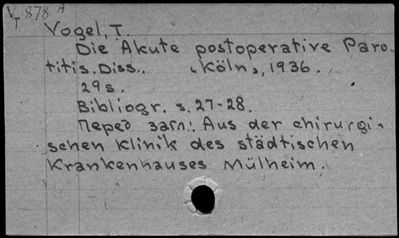 V 878 A
T
Vogel, T.
Die Akute postoperative Paro-
titis. Diss.. "Köln", 1936.
29s.
Bibliogr. s. 27-28.
Перед загл.: Aus der chirurgi-
schen Klinik des städtischen
Krankenhauses Mülheim.